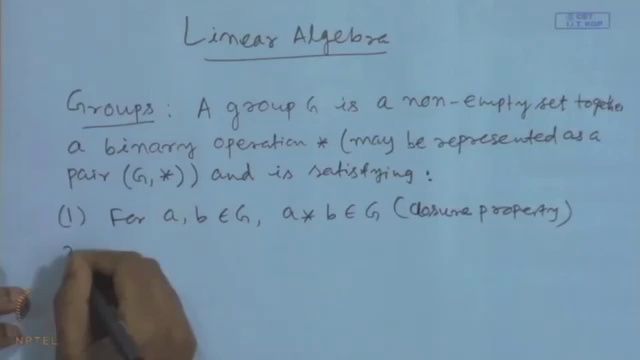 © CET
I.I.T. KGP
Linear Algebra
Groups: A group G is a non-empty set together
a binary operation * (may be represented as a
pair (G,*)) and is satisfying:
(1) For a, b ∈ G, a * b ∈ G (closure property)
NPTEL